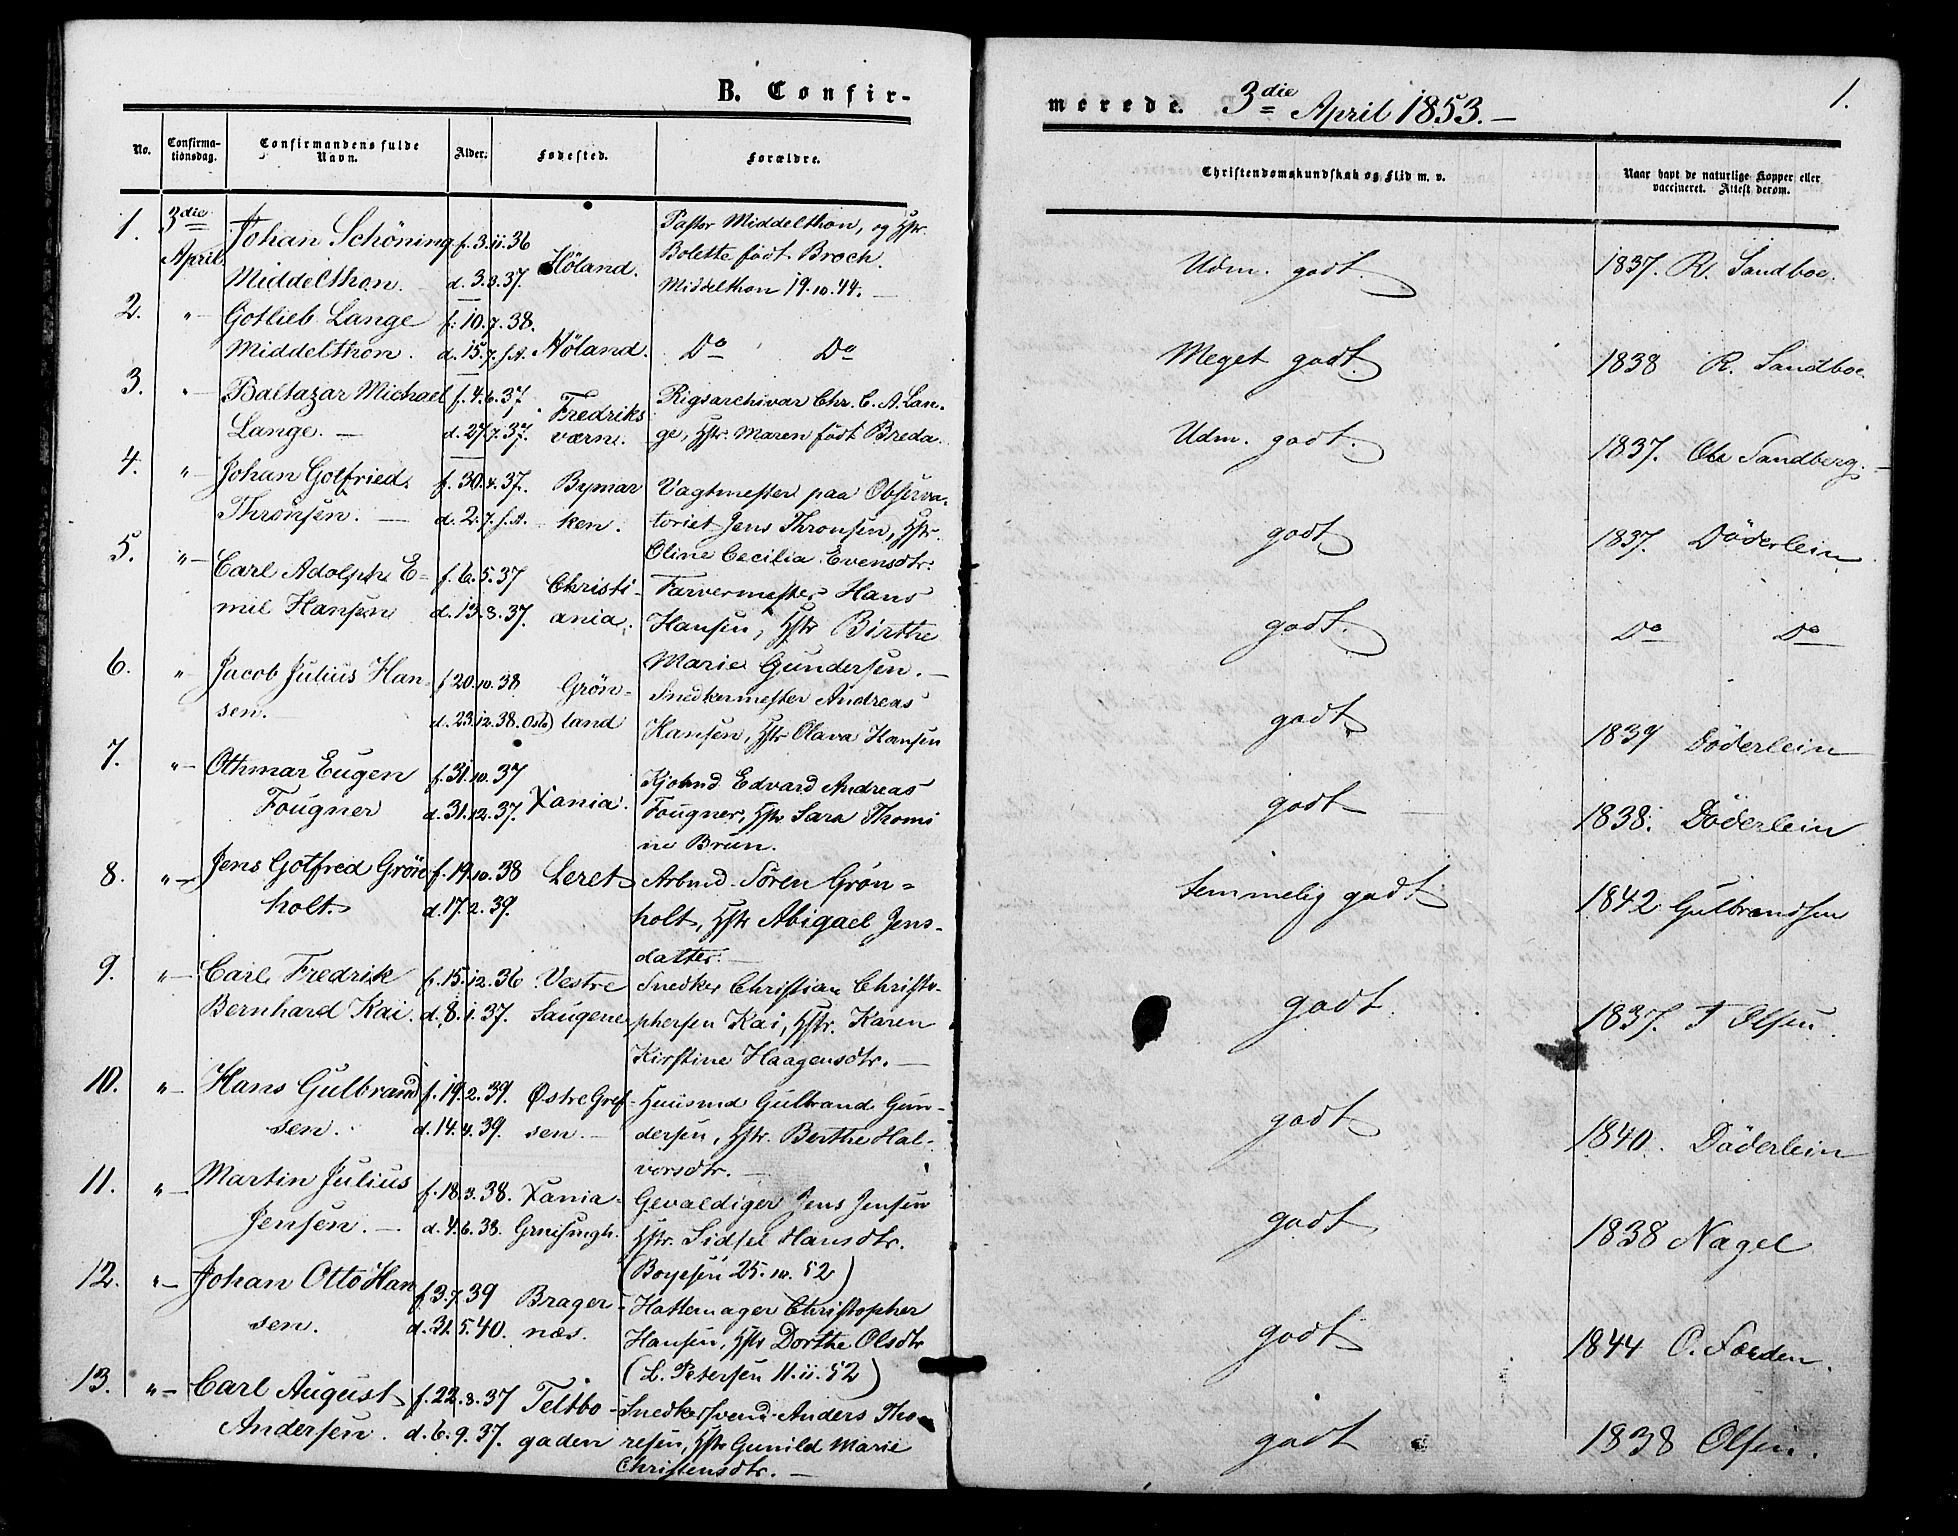 B. Confir-
merede. 3die April 1853.—
1.
No.
Confirma-
tionsdag.
Confirmandens fulde
Navn.
Alder.
Fødested.
Forældre.
Christendomskundskab og Flid m. v.
Naar havt de naturlige Kopper eller
vaccineret. Attest derom.
1. 3die
April
Johan Schöning f. 3.11.36
Middelthon. d. 3. 37. Höland.
Pastor Middelthon, og Hstr.
Bolette födt Broch.
Middelthon 19.10.44.
Udm. godt. 1837. R. Sandboe.
2. "— Gotlieb Lange f. 10.7.38.
Middelthon. d. 15.7. s.A. Höland. Do Do
Meget godt. 1838 R. Sandboe.
3. "— Baltazar Michael f. 4.6.37 Fredriks
Lange.— d. 27.7.37. værn.
Rigsarchivar Chr. C. A. Lan-
ge, Hstr. Maren födt Breda.
Udm. godt. 1837. Ole Sandberg.—
4. "— Johan Gotfried f. 30.4.37. Bymar
Thronsen.— d. 2.7. s.A. ken.
Vagtmester paa Observa-
toriet Jens Thronsen, Hstr.
Oline Cecilia Evensdtr.
godt 1837. Döderlein
5. "— Carl Adolph E- f. 6.5.37 Christi-
mil Hansen d. 13.8.37. ania.
Farvermester Hans
Hansen, Hstr Birthe
Marie Gundersen.—
godt. Do Do
6. "— Jacob Julius Han- f 20.10.38 Grön-
sen.— d. 23.12.38. Oslo) land
Snedkermester Andreas
Hansen, Hstr Olava Hansen
godt 1839 Döderlein
7. "— Othmar Eugen f. 31.10.37
Fougner d. 31.12.37. Xania.
Kjöbmd Edvard Andreas
Fougner, Hstr. Sara Thomi
ne Brun.
godt 1838. Döderlein
8. "— Jens Gotfred Grön f. 19.10.38 Leret
holt. d. 17.2.39.
Arbmd. Sören Grön=
holt, Hstr Abigael Jens-
datter.—
temmelig godt 1842 Gulbrandsen
9. "— Carl Fredrik f. 15.12.36 Vestre
Bernhard Kai. d. 8.1.37. Saugene
Snedker Christian Christo-
phersen Kai, Hstr. Karen
Kirstine Haagensdtr.—
godt. 1837. T Olsen.
10. "— Hans Gulbrand f. 19.2.39. Østre Gref-
sen. d. 14.4.39. sen.—
Huusmd Gulbrand Gun-
dersen, Hstr. Berthe Hal-
vorsdtr.—
godt 1840. Döderlein
11. "— Martin Julius f. 18.3.38. Xania-
Jensen.— d. 4.6.38.
Gevaldiger Jens Jensen
Hstr. Sidsel Hansdtr.
(Boyesen 25.10.52)
godt 1838 Nagel
12. "— Johan Otto Han f. 3.7.39 Brager-
sen. d. 31.5.40. næs.
Hattemager Christopher
Hansen, Hstr Dorthe Olsdtr
(L. Petersen 11.11.52)
godt 1844 C. Forden.
13. "— Carl August f. 22.8.37 Teltbo-
Andersen. d. 6.9.37. gaden
Snedkersvend Anders Tho-
resen, Hstr Gunild Marie
Christensdtr.—
godt 1838 Olsen.